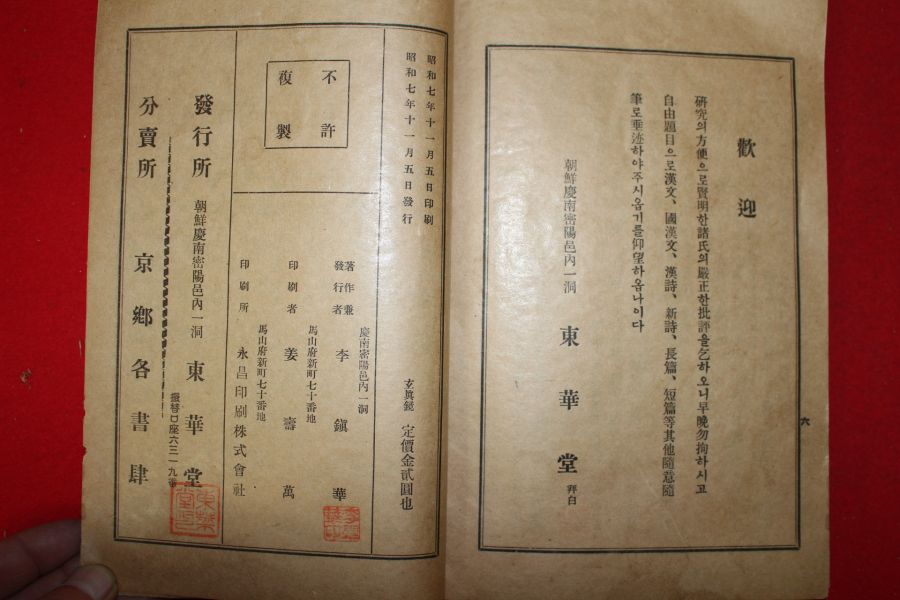 歡迎
硏究의方便으로賢明한諸氏의嚴正한批評을乞하오니早晩勿拘하시고
自由題目으로漢文、國漢文、漢詩、新詩、長篇、短篇等其他隨意隨
筆로垂迹하야주시옵기를仰望하옵나이다
朝鮮慶南密陽邑內一洞 東華堂 拜白
六
昭和七年十一月五日印刷
昭和七年十一月五日發行
玄眞鏡 定價金貳圓也
不許
複製
慶南密陽邑內一洞
著作兼
發行者 李鎭華
馬山府新町七十番地
印刷者 姜壽萬
馬山府新町七十番地
印刷所 永昌印刷株式會社
發行所 朝鮮慶南密陽邑內一洞 東華堂
振替口座六三一九番
分賣所 京鄕各書肆